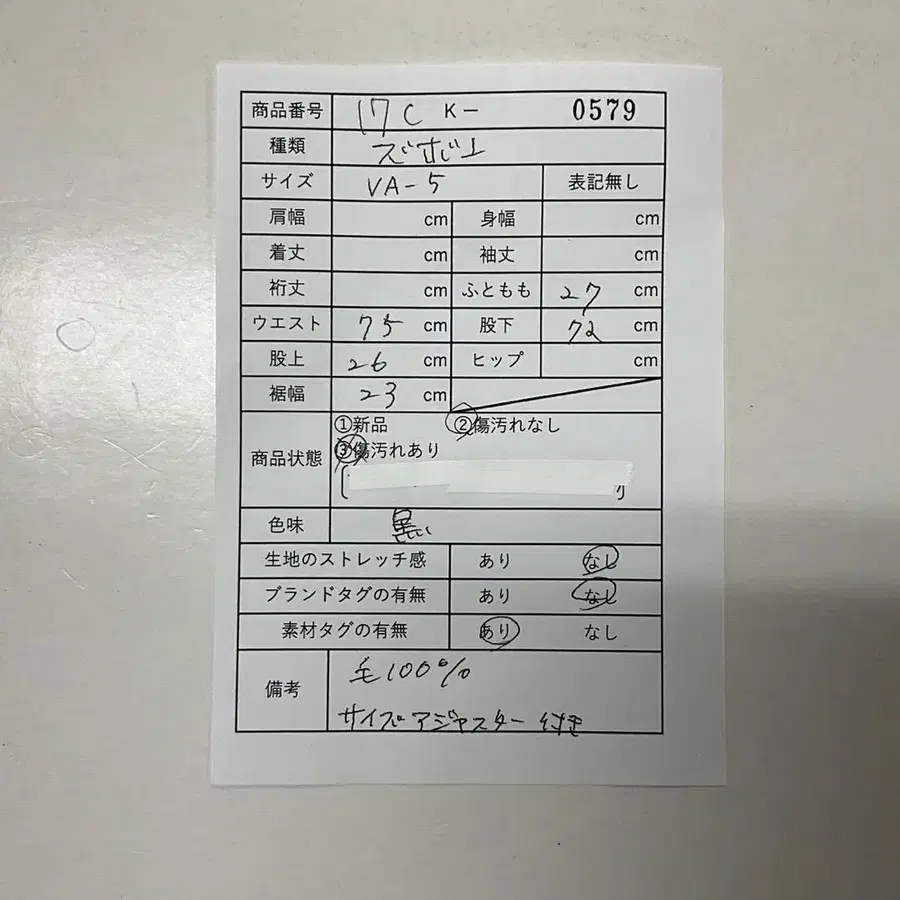 商品番号 17C K- 0579
種類 ズボン
サイズ VA-5 表記無し
肩幅 cm 身幅 cm
着丈 cm 袖丈 cm
裄丈 cm ふともも 27 cm
ウエスト 75 cm 股下 72 cm
股上 26 cm ヒップ cm
裾幅 23 cm
商品状態 ①新品 ②傷汚れなし
③傷汚れあり
色味 黒い
生地のストレッチ感 あり なし
ブランドタグの有無 あり なし
素材タグの有無 あり なし
備考 毛100%
サイズアジャスター付き